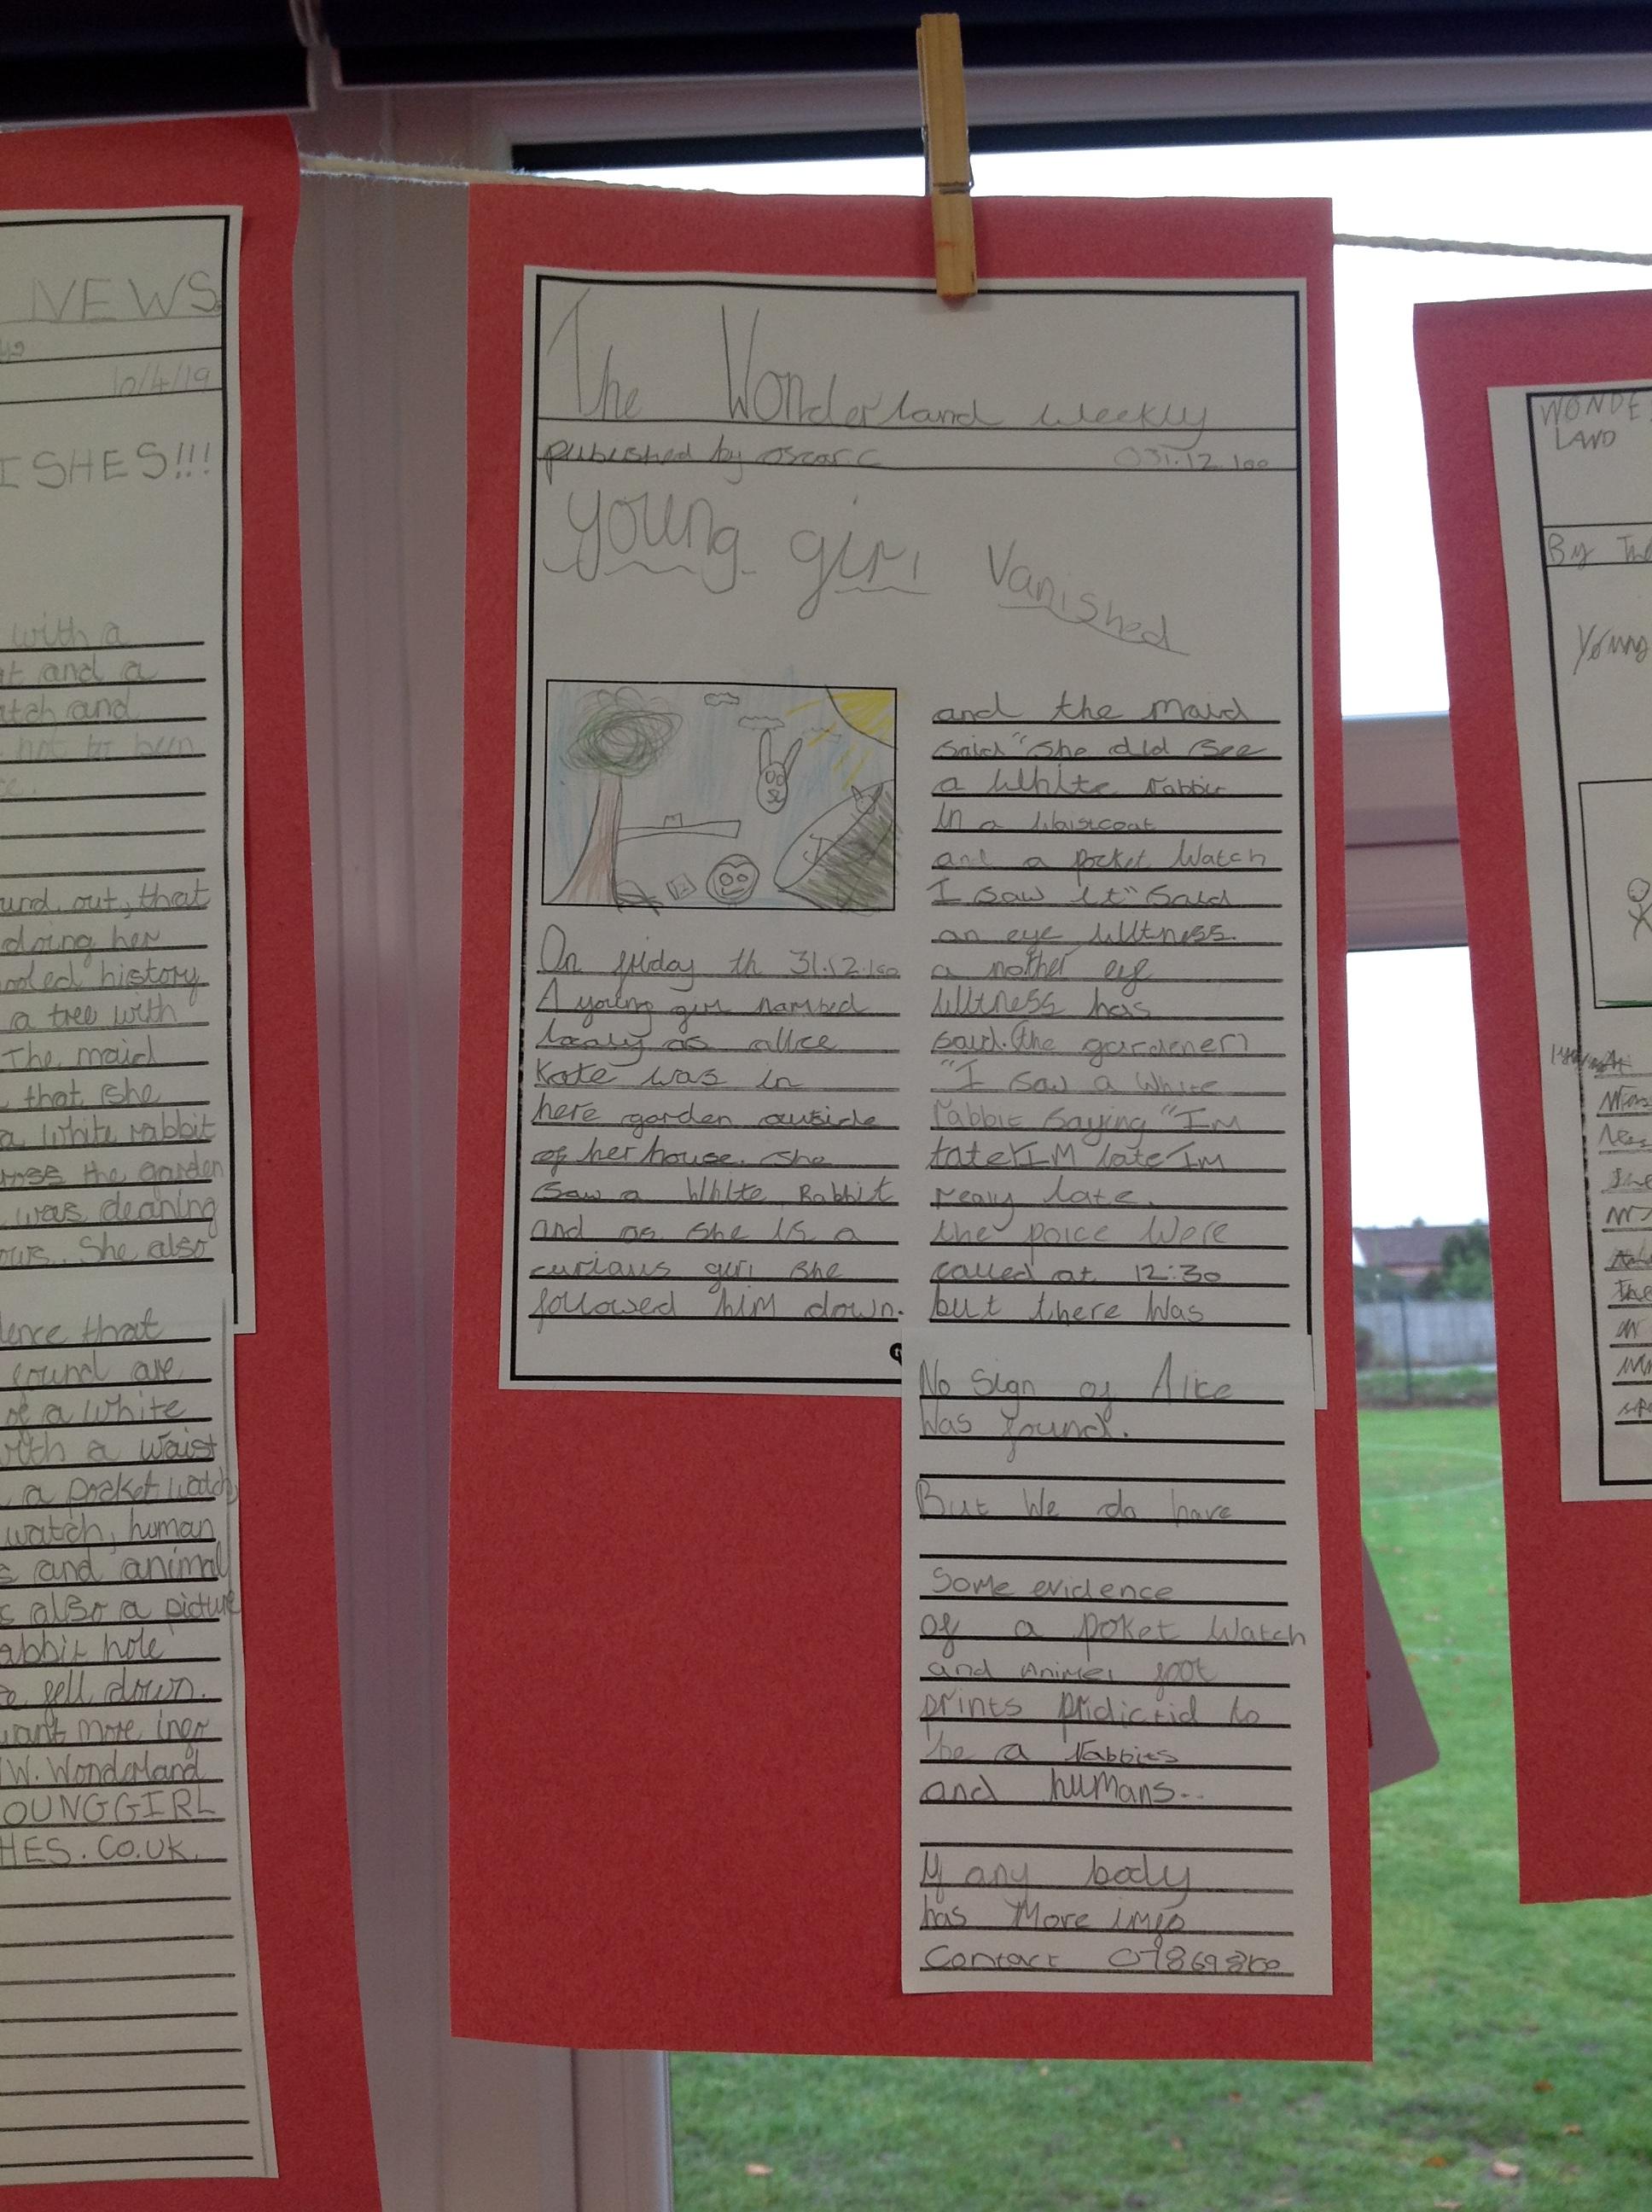 NEWS
10/4/19
ISHES!!!
with a
at and a
atch and
not to been
und out, that
doing her
ooled history
a tree with
The maid
that she
a white rabbit
ross the garden
was cleaning
ows. She also
dence that
found are
of a white
with a waist
a pocket watch,
watch, human
s and animal
s also a picture
abbit hole
e fell down.
want more info
W. Wonderland
OUNGGIRL
HES.CO.UK.
The Wonderland weekly
published by oscar c 031.12.100
young girl Vanished
On friday th 31.12.100
A young girl nambed
localy as alice
Kate was in
here garden outside
of her house. she
saw a White Rabbit
and as she is a
curious girl she
followed him down.
and the maid
said "she did see
a White rabbit
in a waiscoat
and a pocket Watch
I saw it" said
an eye witness.
a nother eye
witness has
said. (the gardener)
"I saw a White
rabbit saying "Im
late IM late Im
realy late.
the poice were
called at 12:30
but there was
No sign of Alice
Was found.
But We do have
Some evidence
of a poket Watch
and animel foot
prints pridictid to
be a rabbits
and humans..
If any body
has More imfo
Contact
WONDE
LAND
By The
Young